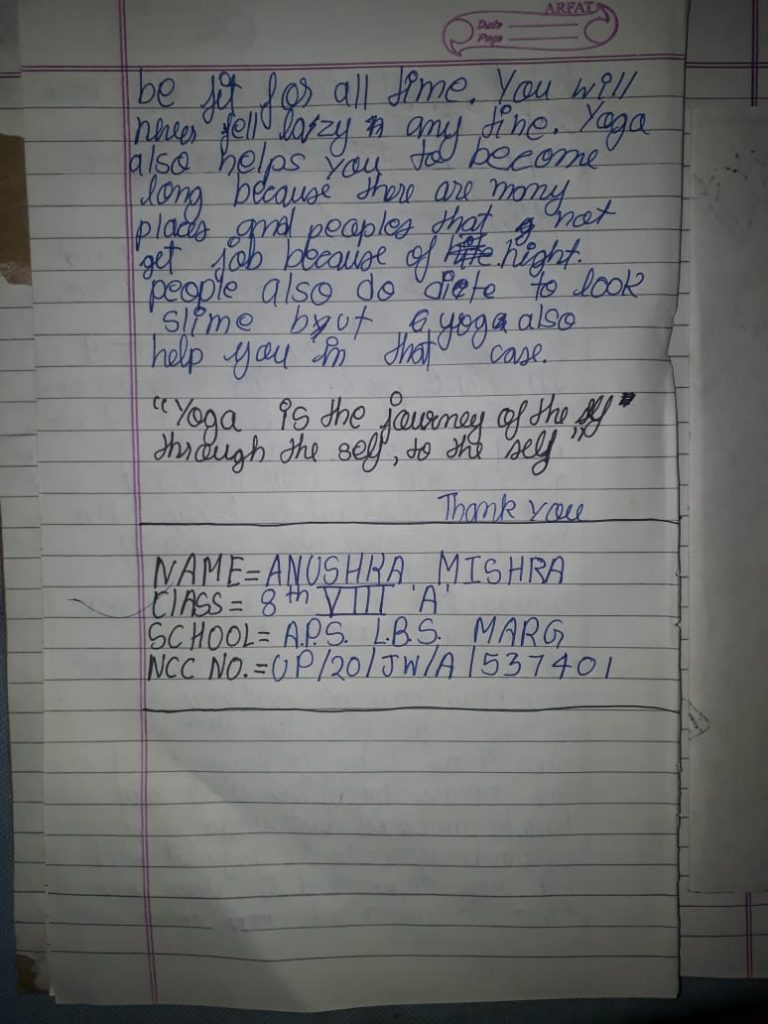 ARFAT
Date
Page
be fit for all time. You will
never fell lazy in any time. Yoga
also helps you to become
long because there are many
places and peoples that not
get job because of hight.
people also do diete to look
slime but yoga also
help you in that case.
"Yoga is the journey of the self
through the self, to the self"
Thank you
NAME=ANUSHKA MISHRA
CLASS= 8th VIII 'A'
SCHOOL= A.P.S. L.B.S. MARG
NCC NO.=UP/20/JW/A/537401